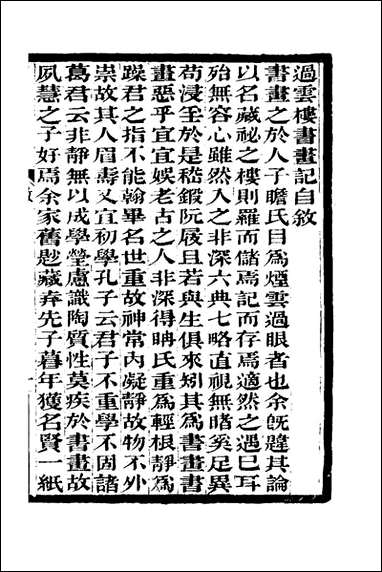 過雲樓書畫記自敘
書畫之於人子瞻氏目爲煙雲過眼者也余旣韙其論
以名藏祕之樓則羅而儲焉記而存焉適然之遇已耳
殆無容心雖然入之非深六典七略直視無睹奚足異
苟浸壬於是嵇鍛阮屐且若與生俱來矧其爲書畫書
畫惡乎宜宜娛老古之人非深得聃氏重爲輕根靜爲
躁君之指不能翰畢名世重故神常內凝靜故物不外
祟故其人眉壽又宜初學孔子云君子不重學不固諸
葛君云非靜無以成學瑩慮識陶質性莫疾於書畫故
夙慧之子好焉余家舊尟藏弆先子暮年獲名賢一紙